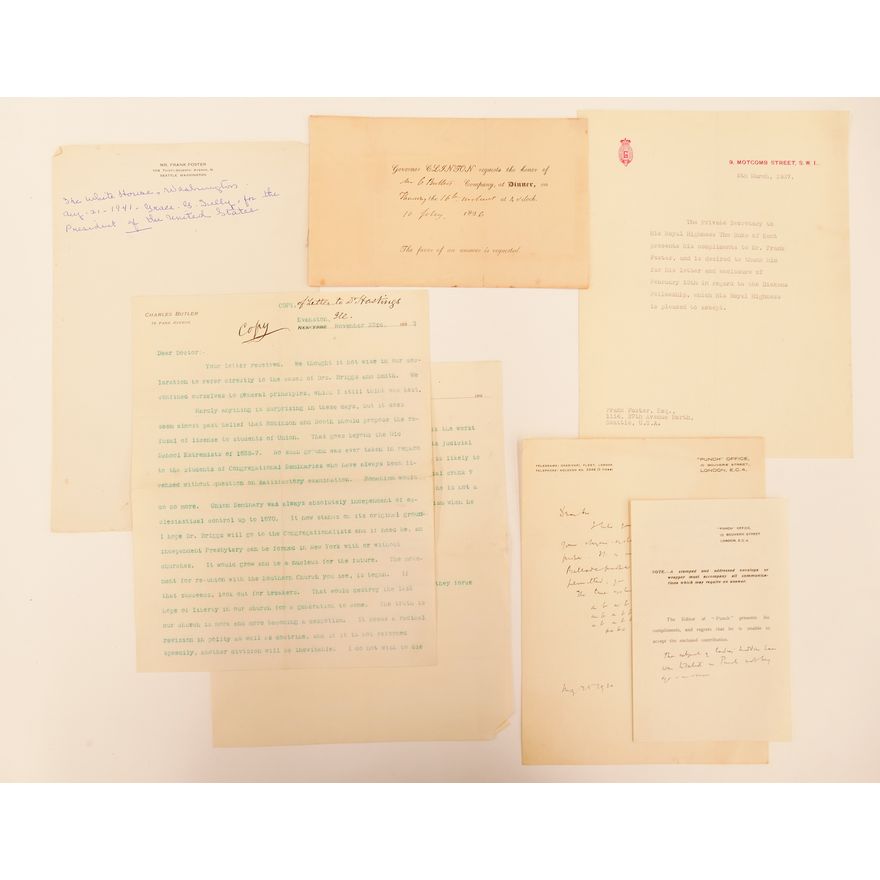 MR. FRANK FOSTER
SEATTLE WASHINGTON
The White House - Washington
Aug-21-1941- Grace G. Tully, for the
President of the United States
Governor CLINTON requests the honor of
Mr C Butler's Company, at Dinner, on
Thursday the 16th instant at 4 o'clock.
10 July, 1826
The favor of an answer is requested.
9, MOTCOMB STREET, S.W.1.
March, 1937.
The Private Secretary to
His Royal Highness The Duke of Kent
presents his compliments to Mr. Frank
Foster, and is desired to thank him
for his letter and enclosure of
February 19th in regard to the Dickens
Fellowship, which His Royal Highness
is pleased to accept.
Frank Foster, Esq.,
1114. 37th Avenue North,
Seattle, U.S.A.
CHARLES BUTLER
COPY. of Letter to Dr Hastings
Copy
Evanston, Ill.
NEW YORK November 23rd. 189 3
Dear Doctor:-
Your letter received. We thought it not wise in our dec-
laration to refer directly to the cases of Drs. Briggs and Smith. We
confined ourselves to general principles, which I still think was best.
Hardly anything is surprising in these days, but it does
seem almost past belief that Robinson and Booth should propose the re-
fusal of license to students of Union. That goes beyond the Old
School Extremists of 1836-7. No such ground was ever taken in regard
to the students of Congregational Seminaries who have always been li-
censed without question on satisfactory examination. Romanism would
go no more. Union Seminary was always absolutely independent of ec-
clesiastical control up to 1870. It now stands on its original ground.
I hope Dr. Briggs will go to the Congregationalists and if need be, an
independent Presbytery can be formed in New York with or without
churches. It would grow and be a nucleus for the future. The move-
ment for re-union with the Southern Church you see, is begun. If
that succeeds, look out for breakers. That would destroy the last
hope of liberty in our church for a generation to come. The truth is
our church is more and more becoming a deception. It needs a radical
revision in polity as well as doctrine, and if it is not reformed
speedily, another division will be inevitable. I do not wish to die
the worst
judicial
likely to
he is not a
when he
they force
TELEGRAMS: CHARIVARI, FLEET, LONDON.
"PUNCH" OFFICE,
10, BOUVERIE STREET,
LONDON, E.C.4.
Dear Mr
Aug 25 1920
"PUNCH" OFFICE,
10 BOUVERIE STREET
LONDON, E.C.4
NOTE.—A stamped and addressed envelope or
wrapper must accompany all communica-
tions which may require an answer.
The Editor of "Punch" presents his
compliments, and regrets that he is unable to
accept the enclosed contribution.